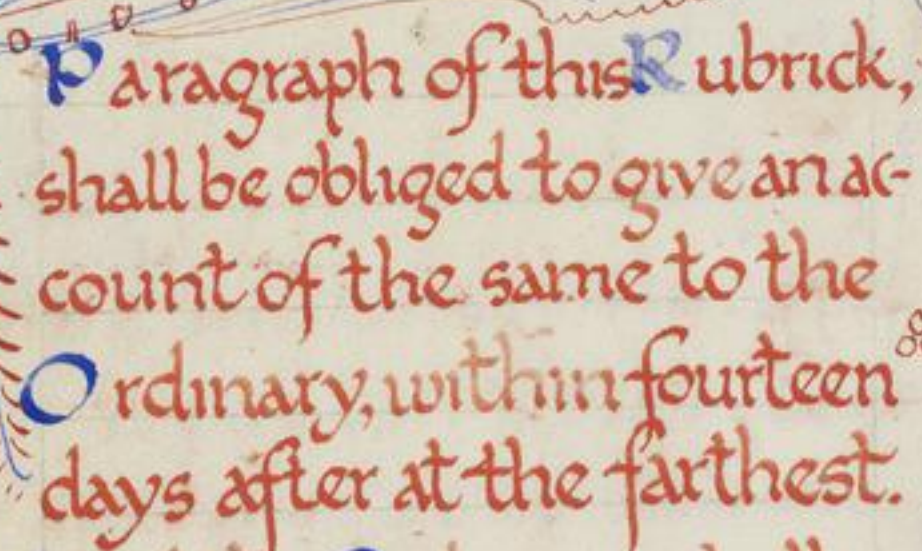 Paragraph of this Rubrick,
shall be obliged to give an ac-
count of the same to the
Ordinary, within fourteen
days after at the farthest.